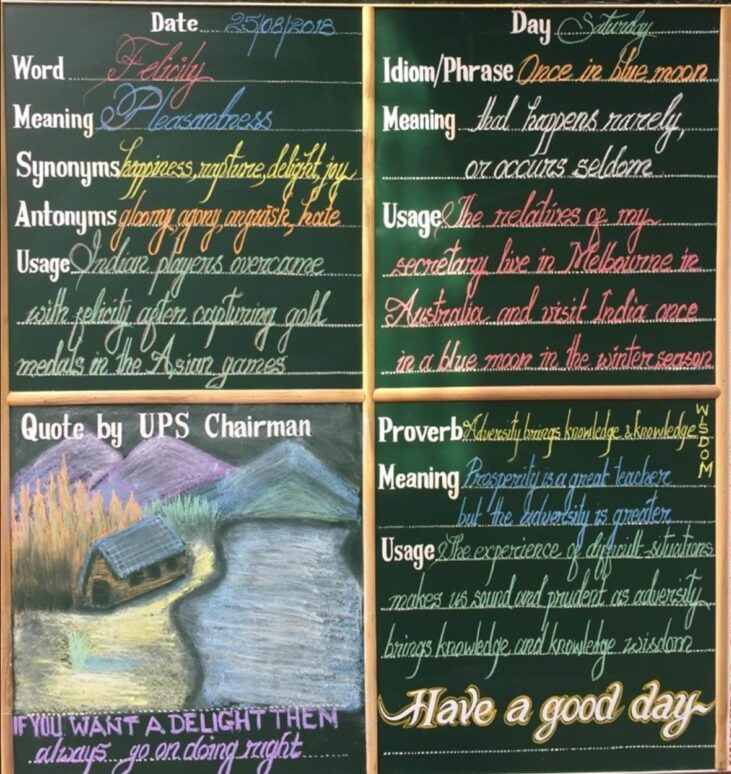 Date 25/08/2018
Word Felicity
Meaning Pleasantness
Synonyms happiness, rapture, delight, joy
Antonyms gloomy, agony, anguish, hate
Usage Indian players overcame
with felicity after capturing gold
medals in the Asian games
Day Saturday
Idiom/Phrase Once in blue moon
Meaning that happens rarely,
or occurs seldom
Usage The relatives of my
secretary live in Melbourne in
Australia and visit India once
in a blue moon in the winter season
Quote by UPS Chairman
IF YOU WANT A DELIGHT THEN
always go on doing right
Proverb Adversity brings knowledge & knowledge WISDOM
Meaning Prosperity is a great teacher
but the adversity is greater
Usage The experience of difficult situations
makes us sound and prudent as adversity
brings knowledge and knowledge wisdom
Have a good day